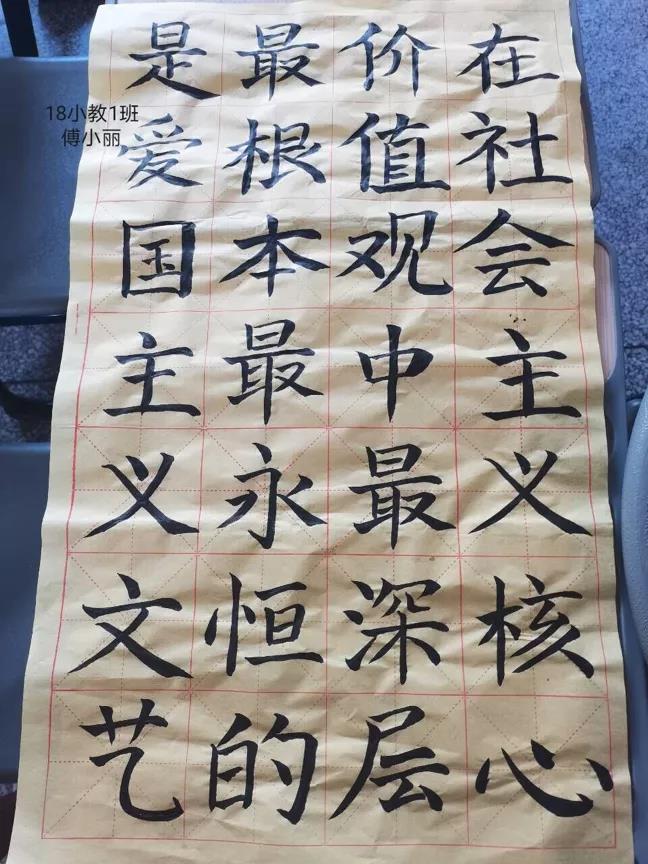 在社会主义核心
价值观中最深层
最根本最永恒的
是爱国主义文艺
18小教1班
傅小丽